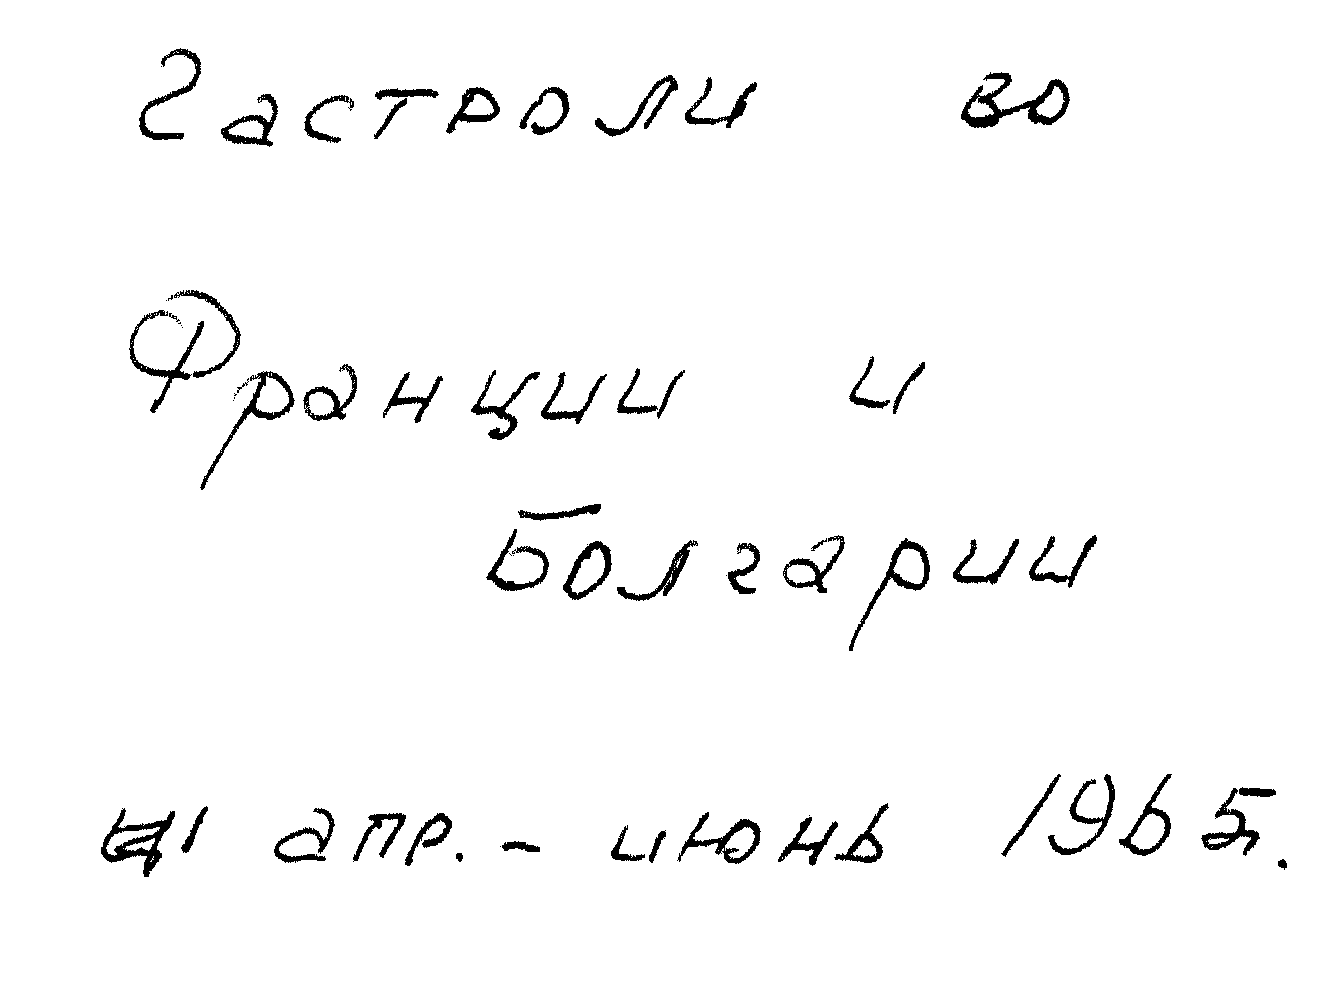 Гастроли во
Франции и
Болгарии
апр. - июнь 1965.